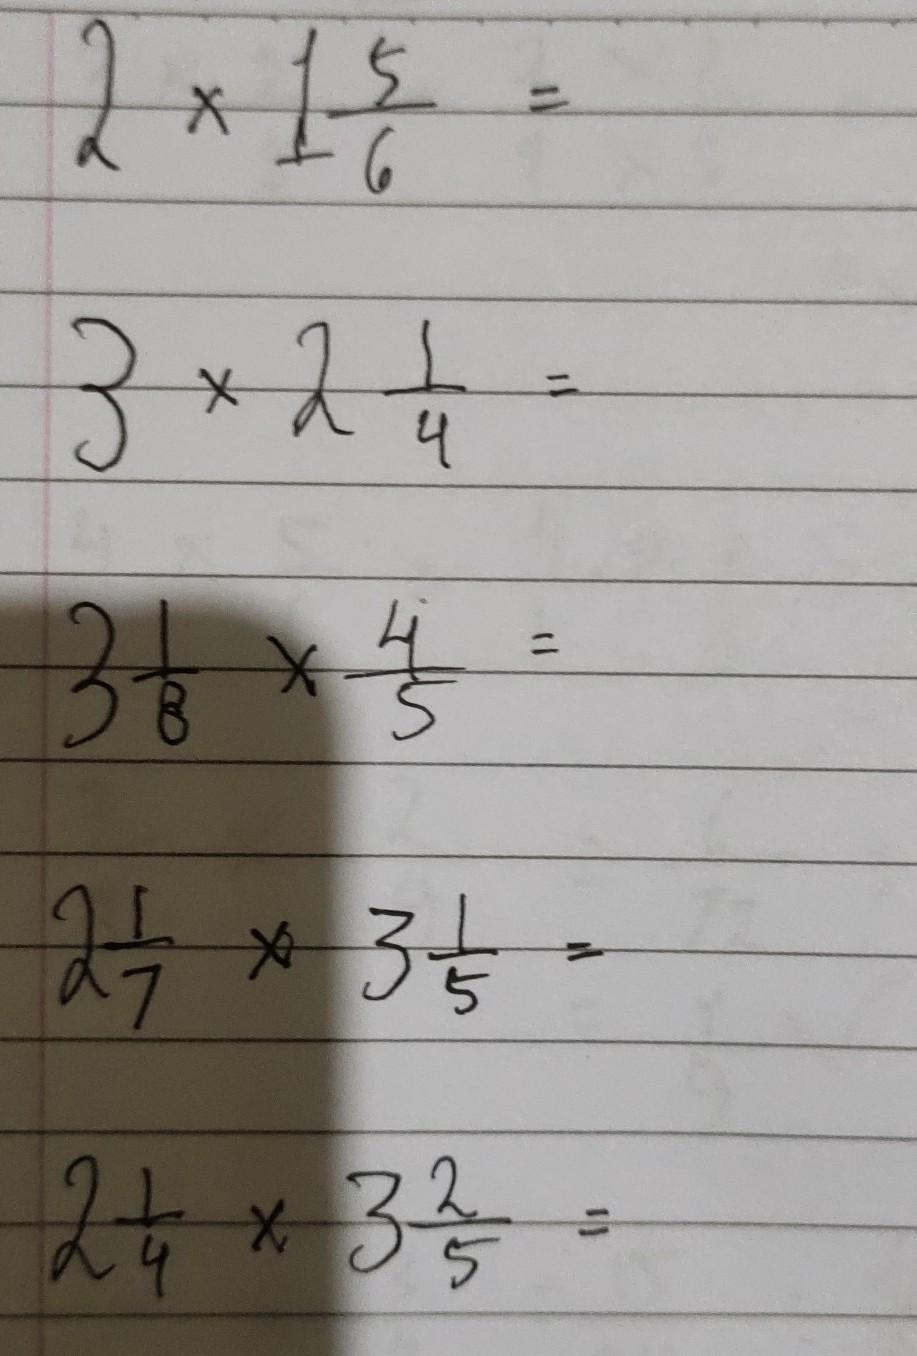 2 × 1 5/6 =
3 × 2 1/4 =
3 1/8 × 4/5 =
2 1/7 × 3 1/5 =
2 1/4 × 3 2/5 =